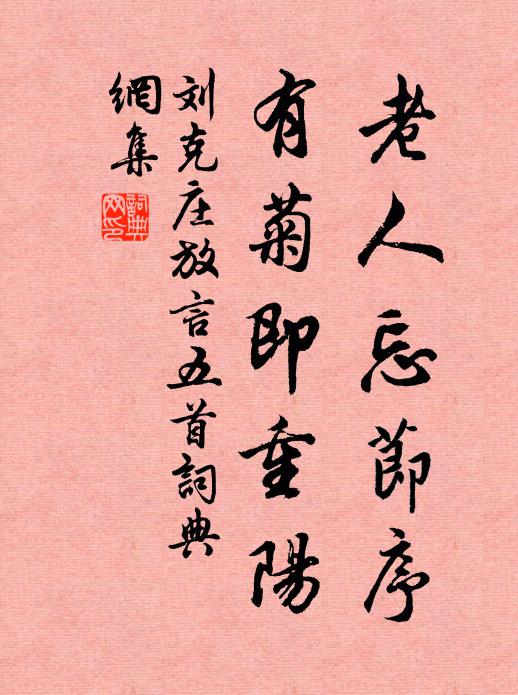 老人忘節序
有菊即重陽
刘克庄放言五首詞典
網集
詞典網印